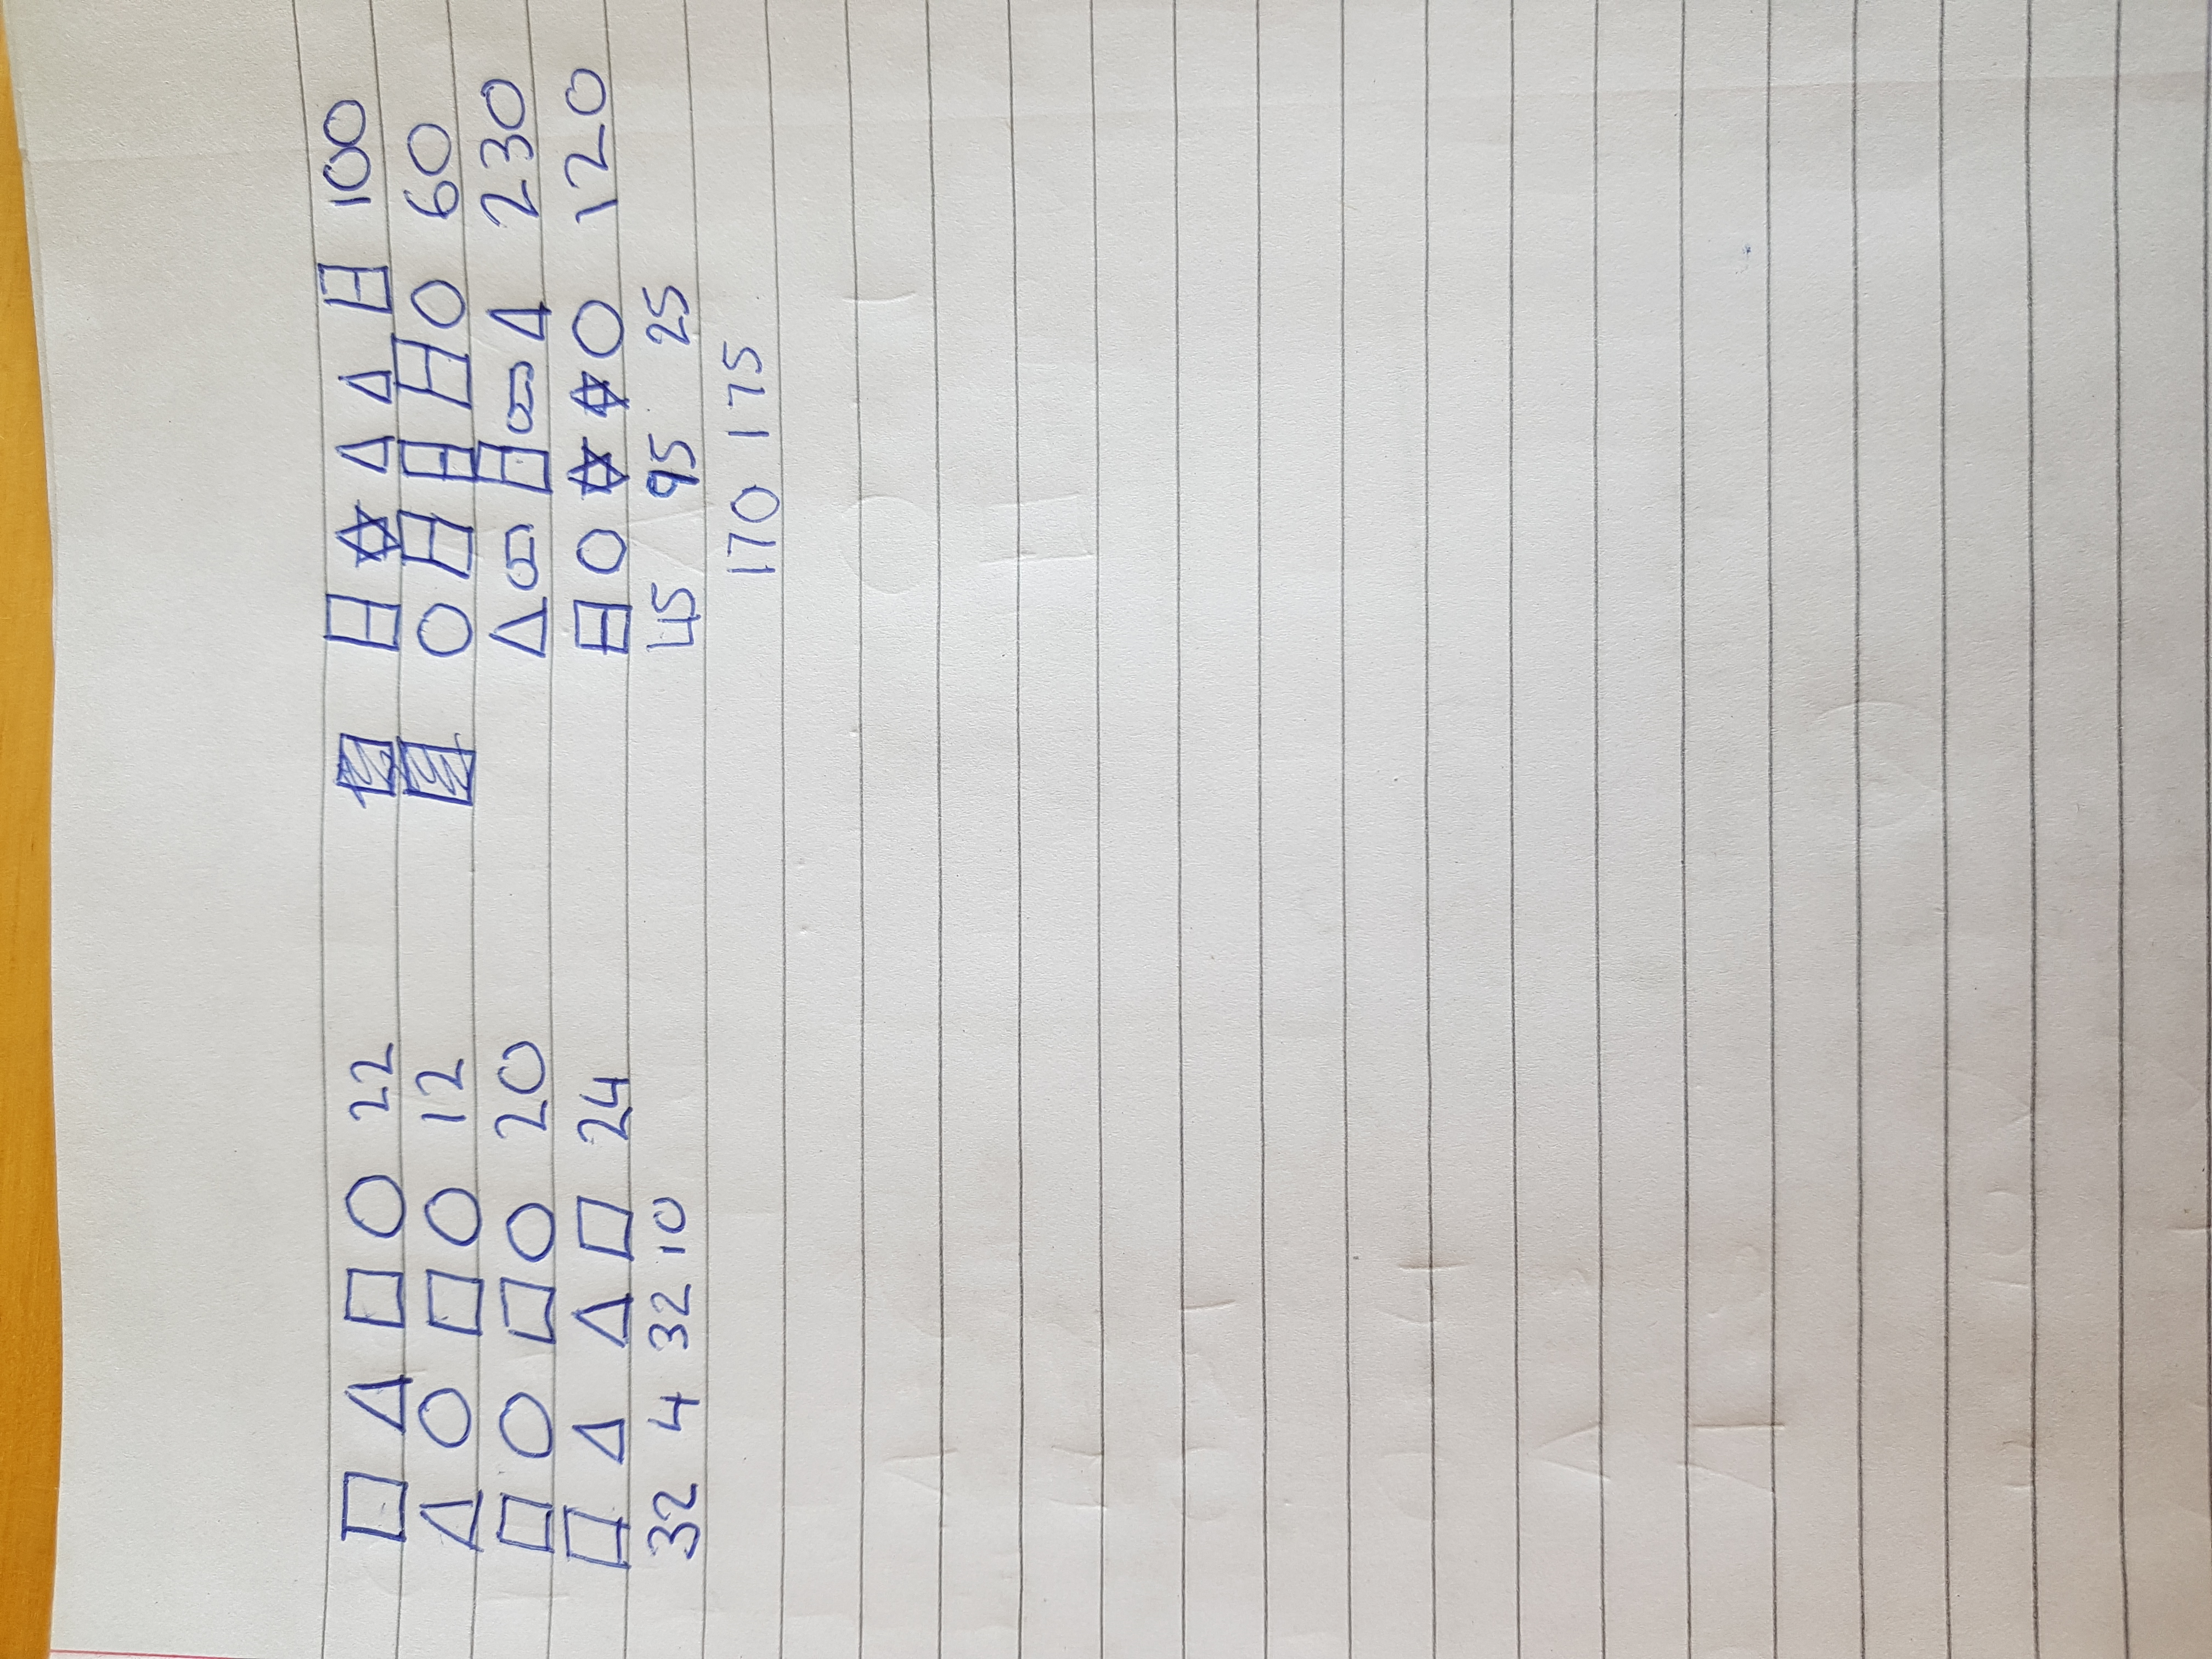 □ △ □ ○ 22
△ ○ □ ○ 12
□ ○ □ ○ 20
□ △ △ □ 24
32 4 32 10
☆ △ △ 100
○ ○ 60
△ △ 230
○ ☆ ☆ ○ 120
45 95 25
170 175